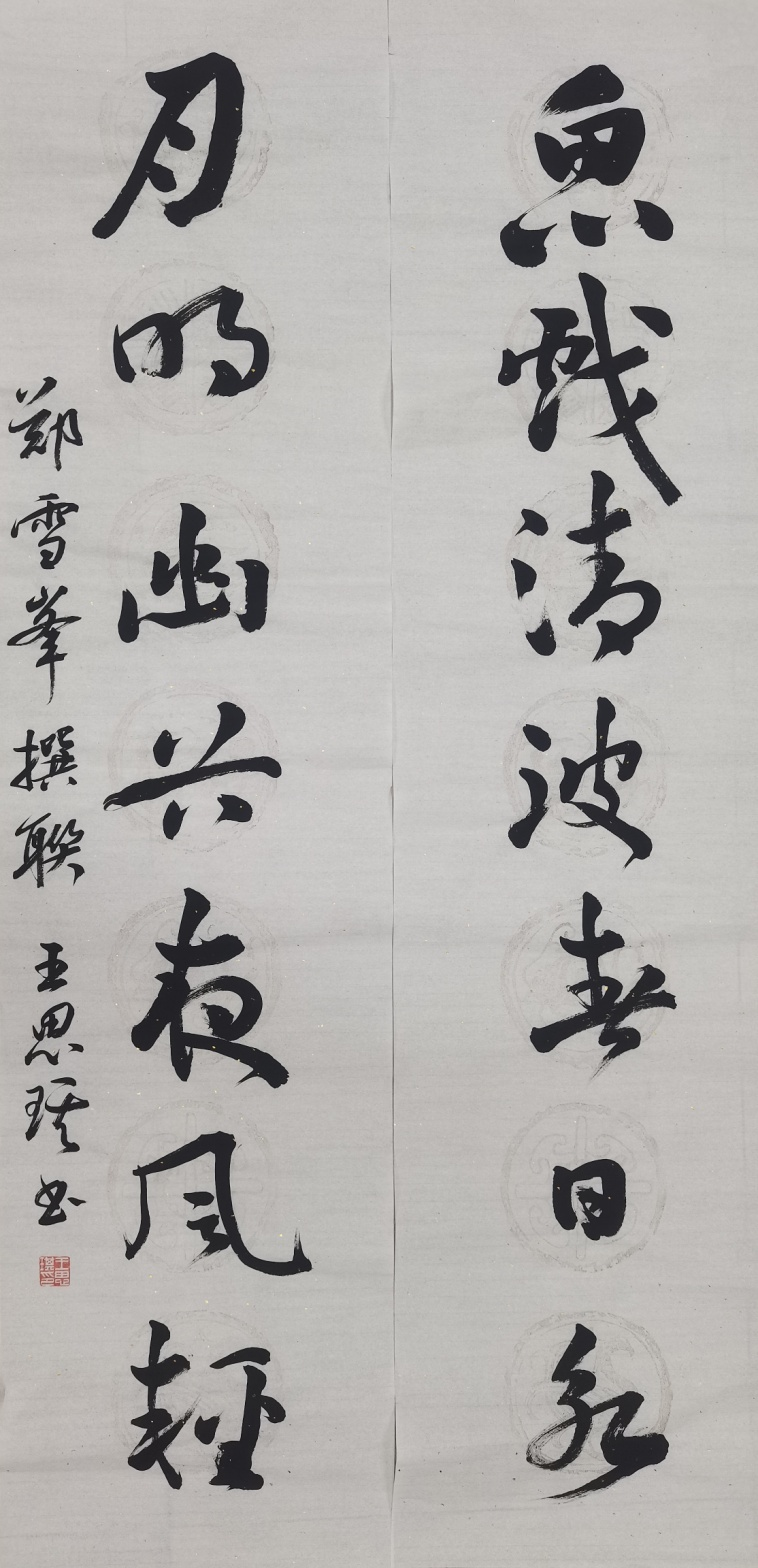 魚戲清波春日永
月明幽興夜風輕
鄭雪峯撰聯 王思書